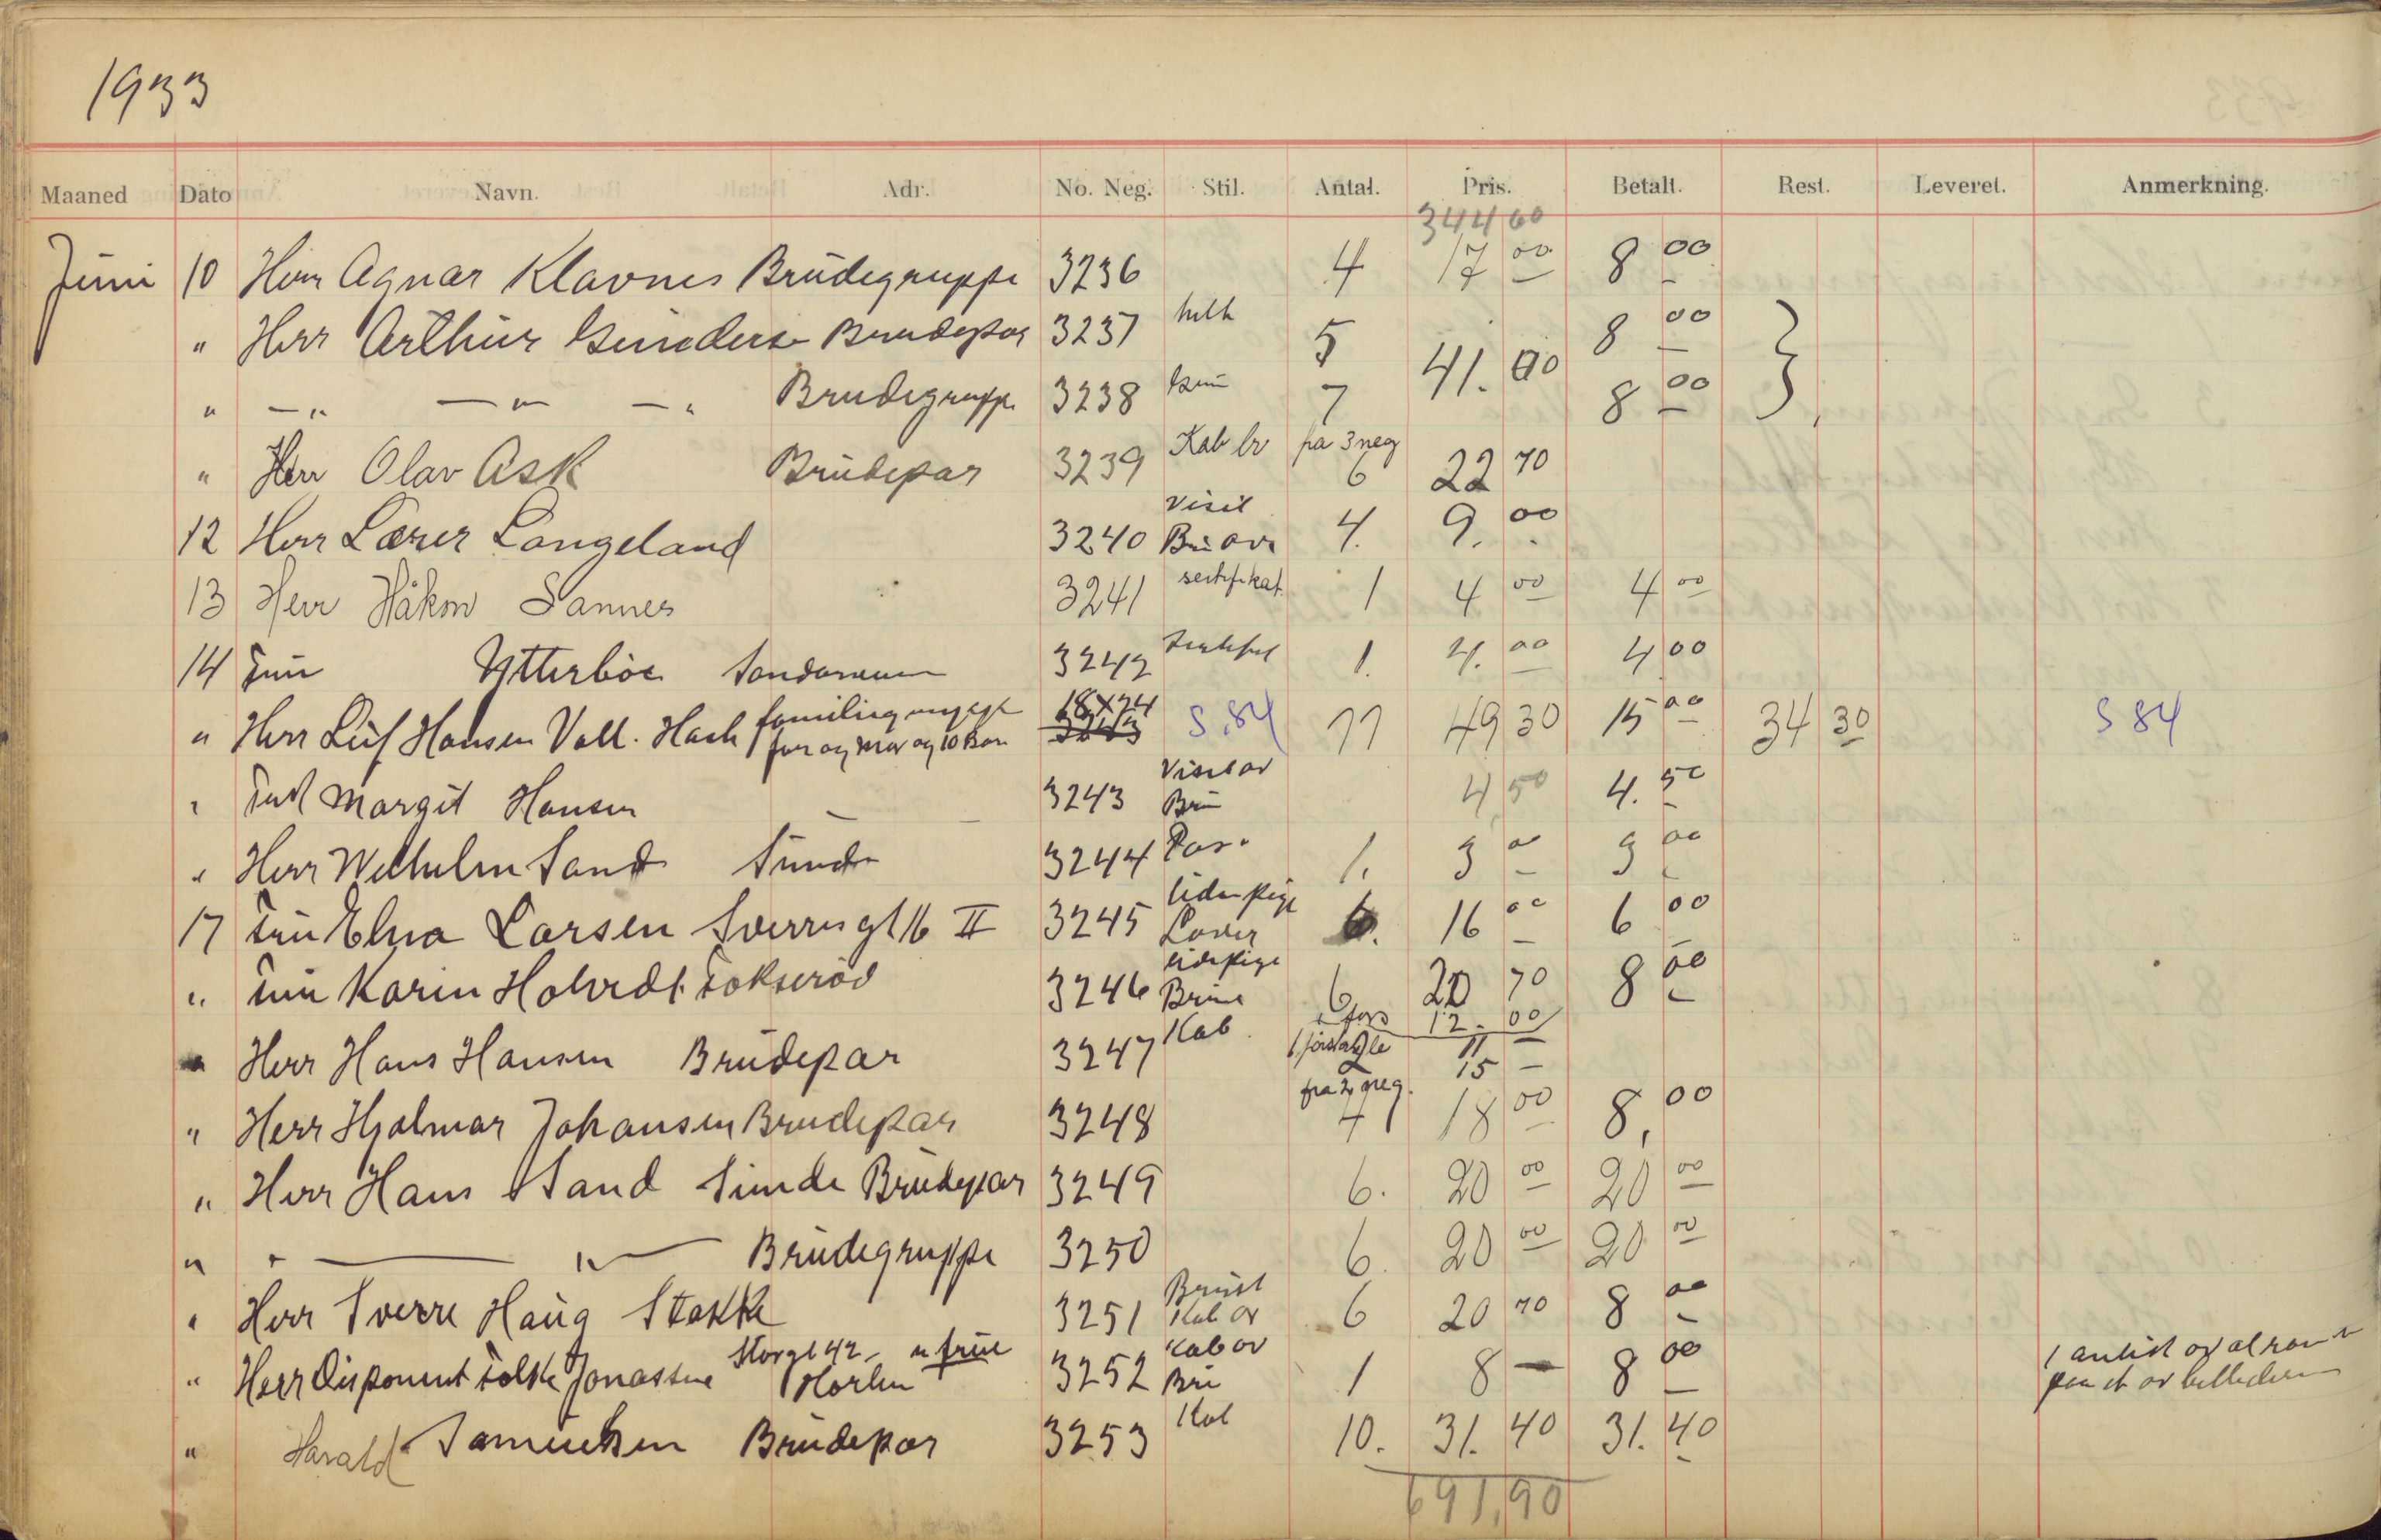 1933
Maaned Dato Navn. Adr. No. Neg. Stil. Antal. Pris. Betalt. Rest. Leveret. Anmerkning.
344 60
Juni 10 Herr Agnar Klavnes Brüdegruppe 3236 4 17 00 8 00
" Herr Arthur Brudepar 3237 5 41. 00 8 00 }
" — " — " — " Brudegruppe 3238 7 8 00
" Herr Olav Ask Brüdepar 3239 Kab br fra 3 neg 6 22 70
12 Herr Lærer Langeland 3240 Visit Brü ov 4. 9. 00
13 Herr Håkon Sannes 3241 sertifikat 1 4 00 4 00
14 Frü Ytterböe 3242 1. 4. 00 4 00
" Herr Leif Hansen Vall. familiegruppe 18x24
far og mor og 10 Barn 3243 S. 84 11 49 30 15 00 34 30 S 84
" Frk Margit Hansen 3243 Visit ov Brü 4 50 4. 50
" Herr Wilhelm Sand Sunde 3244 Pas. 1. 3 00 3 00
17 Frü Elna Larsen Sverres gt 16 II 3245 6. 16 00 6 00
" Frü Karin Fokseröd 3246 6 20 70 8 00
12. 00
" Herr Hans Hansen Brüdepar 3247 Kab. 2 15 —
fra 2 neg.
" Herr Hjalmar Johansen Brudepar 3248 4 18 00 8, 00
" Herr Hans Sand Sunde Brüdepar 3249 6. 20 00 20 00
" " — " — Brüdegruppe 3250 6. 20 00 20 00
" Herr Sverre Haüg Stokke 3251 Brüst Kab ov 6 20 70 8 00
Storgt 42 – u früe
" Herr Disponent Jonassen 3252 Kab ov Brü 1 8 — 8 00 1
" Harald Samuelsen Brüdepar 3253 Kab 10. 31. 40 31. 40
691,90